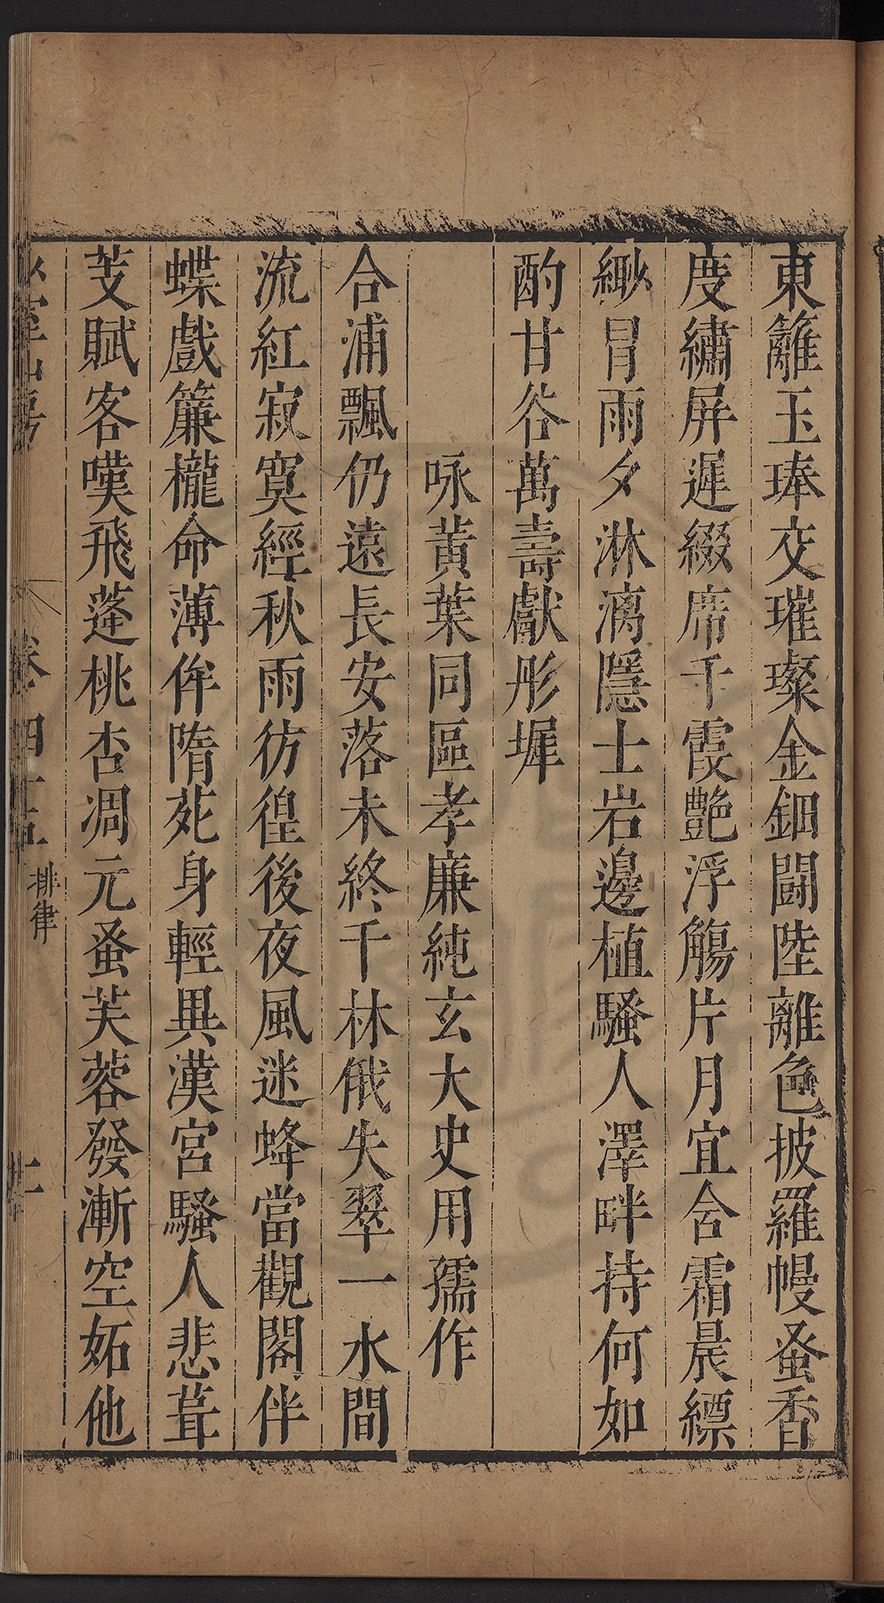 東籬玉琫交璀璨金鈿鬭陸離色披羅幔蚤香
度繡屏遲綴席千霞艷浮觴片月宜含霜晨縹
緲冐雨夕淋漓隱士岩邊植騷人澤畔持何如
酌甘谷萬壽獻彤墀
咏黃葉同區孝廉純玄大史用孺作
合浦飄仍遠長安落未終千林俄失翠一水間
流紅寂寞經秋雨彷徨後夜風迷蜂當觀閣伴
蝶戲簾櫳命薄侔隋苑身輕異漢宮騷人悲葺
芰賦客嘆飛蓬桃杏凋元蚤芙蓉發漸空妬他
卷四十五
排律